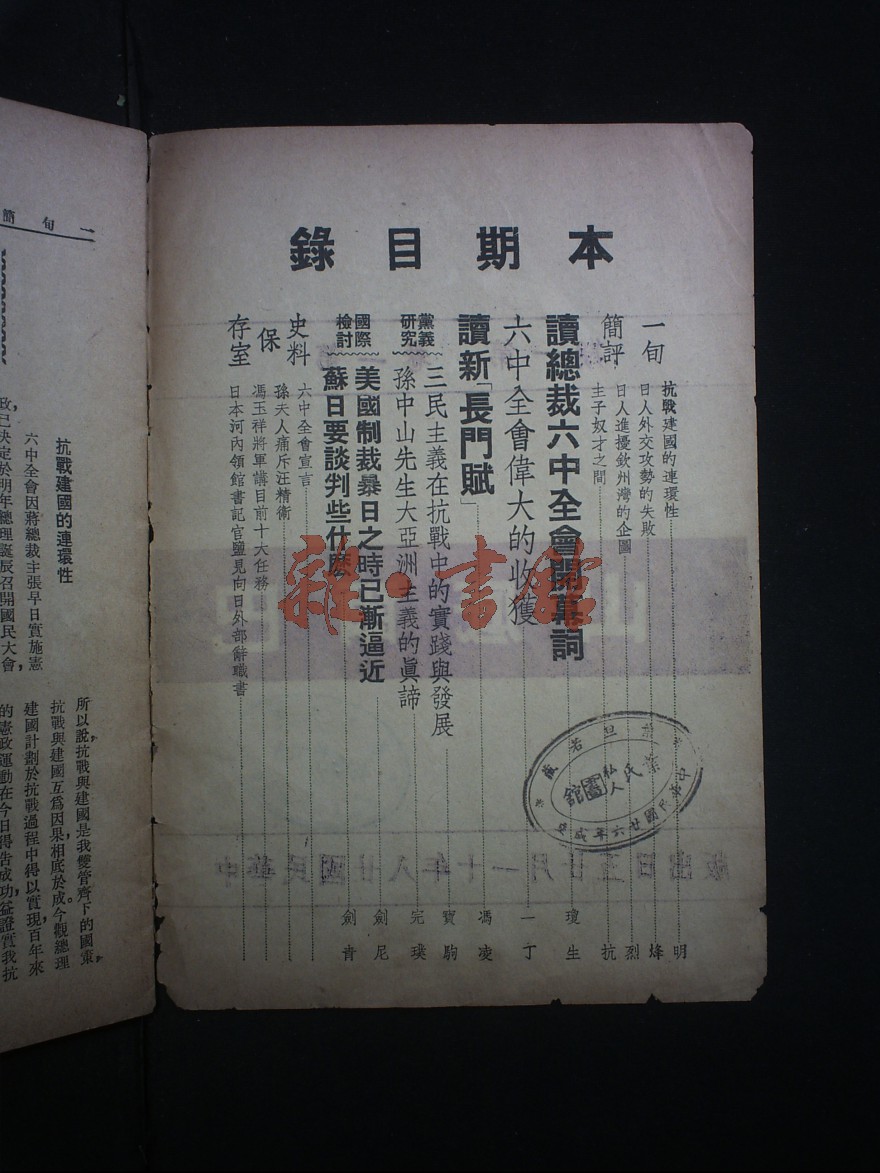 本期目錄
一旬簡評
抗戰建國的連環性 明
日人外交攻勢的失敗 烽
日人進擾欽州灣的企圖 烈
主子奴才之間 抗
讀總裁六中全會開幕詞 瓊生
六中全會偉大的收獲 一丁
讀新「長門賦」 馮凌
黨義研究
三民主義在抗戰中的實踐與發展 寶駒
孫中山先生大亞洲主義的眞諦 完璞
國際檢討
美國制裁暴日之時已漸逼近 劍尼
蘇日要談判些什麽 劍青
史料保存室
六中全會宣言
孫夫人痛斥汪精衛
馮玉祥將軍講目前十六任務
日本河內領館書記官鹽見向日外部辭職書
雜·書館
私人圖館
中華民國廿八年十一月廿五日出版
一旬簡
抗戰建國的連環性
六中全會因蔣總裁主張早日實施憲
政已決定於明年總理誕辰召開國民大會，
所以說抗戰與建國是我雙管齊下的國策，
抗戰與建國互爲因果，相底於成。今觀總理
建國計劃於抗戰過程中得以實現，百年來
的憲政運動在今日得告成功，益證實我抗